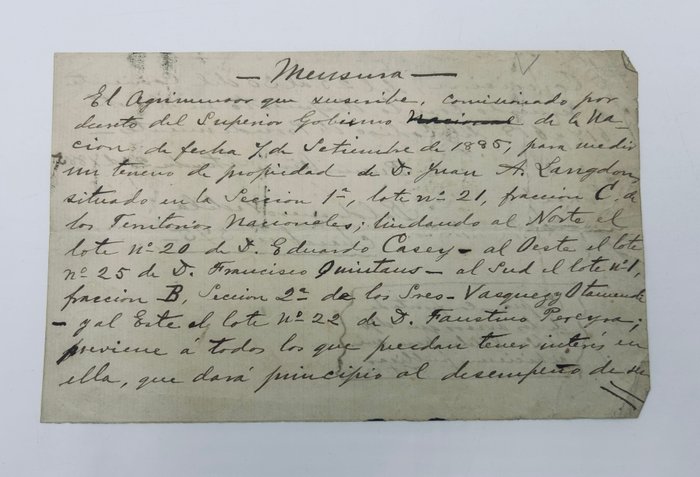 — Mensura —
El Agrimensor que suscribe, comisionado por
decreto del Superior Gobierno Nacional de la Na-
cion, de fecha 7 de Setiembre de 1885, para medir
un terreno de propiedad de D. Juan A. Langdon,
situado en la Seccion 1ª, lote nº 21, fraccion C. de
los Territorios Nacionales; lindando al Norte el
lote Nº 20 de D. Eduardo Casey - al Oeste el lote
nº 25 de D. Francisco Quintana - al Sud el lote nº 1,
fraccion B, Seccion 2ª de los Sres. Vasquez y Otamendi
- y al Este el lote Nº 22 de D. Faustino Pereyra;
previene á todos los que puedan tener interés en
ella, que dará principio al desempeño de su